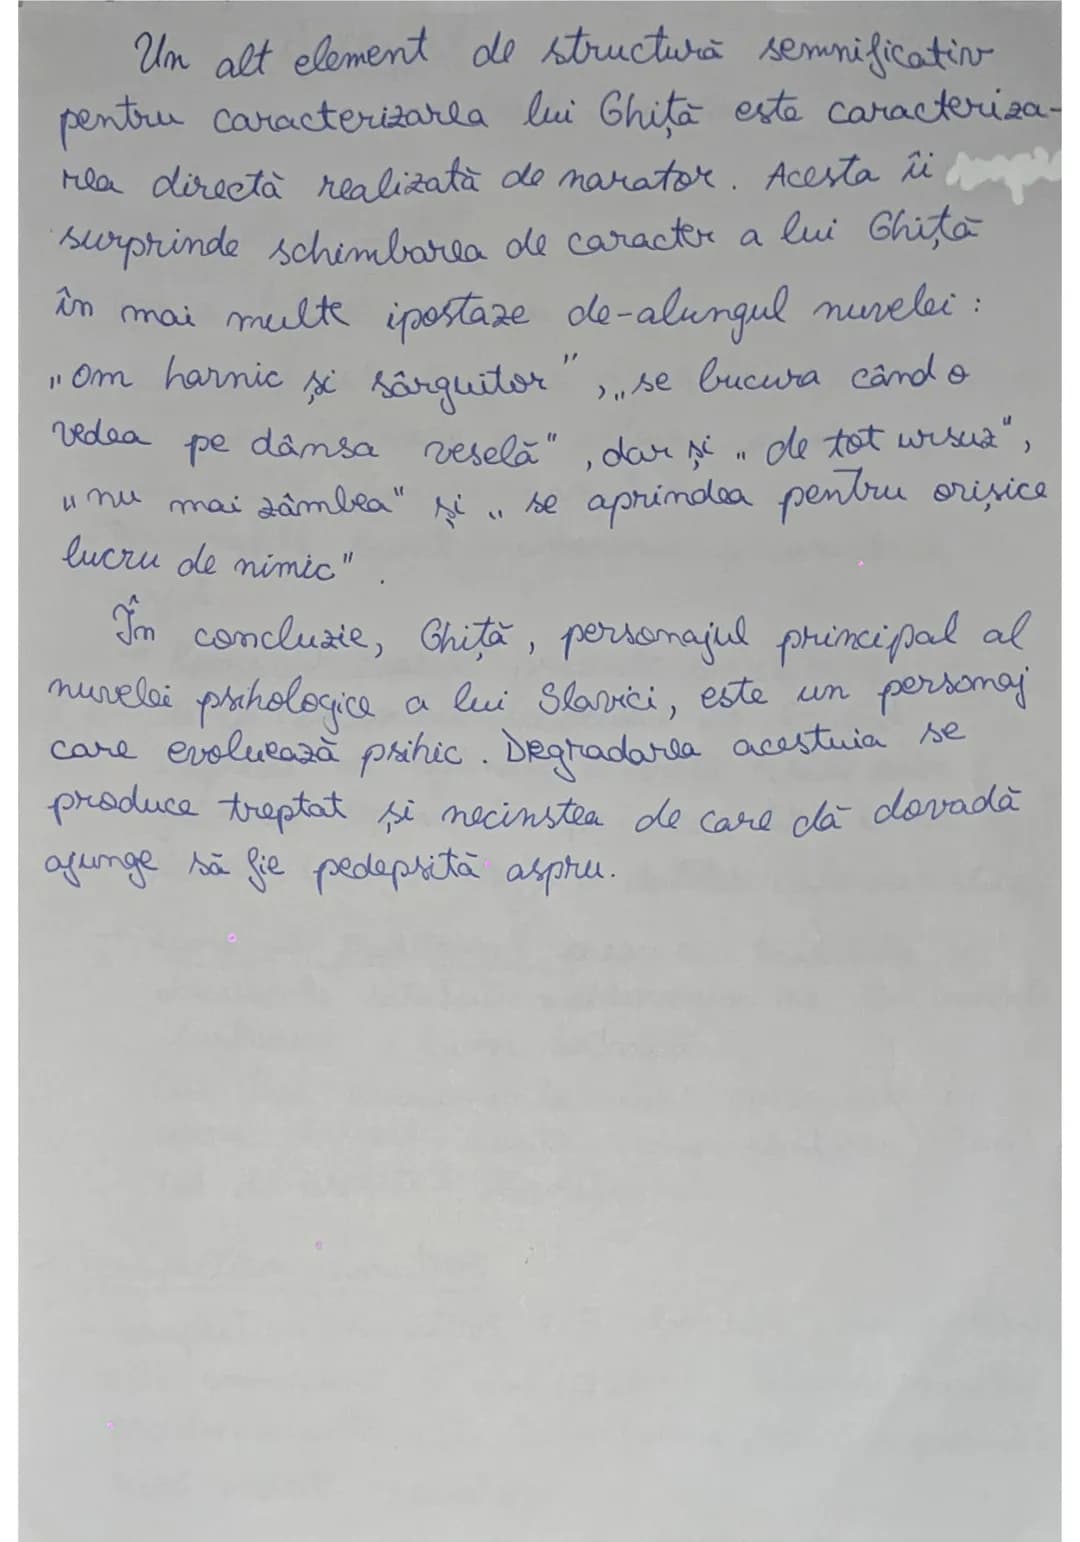 Un alt element de structură semnificativ
pentru caracterizarea lui Ghiță este caracteriza-
rea directă realizată de narator. Acesta îi
surprinde schimbarea de caracter a lui Ghiță
în mai multe ipostaze de-alungul nuvelei:
„Om harnic și sârguitor", „se bucura când o
vedea pe dânsa veselă", dar și „de tot ursuz",
„nu mai zâmbea" și „se aprindea pentru orișice
lucru de nimic".
În concluzie, Ghiță, personajul principal al
nuvelei psihologice a lui Slavici, este un personaj
care evoluează psihic. Degradarea acestuia se
produce treptat și necinstea de care dă dovadă
ajunge să fie pedepsită aspru.